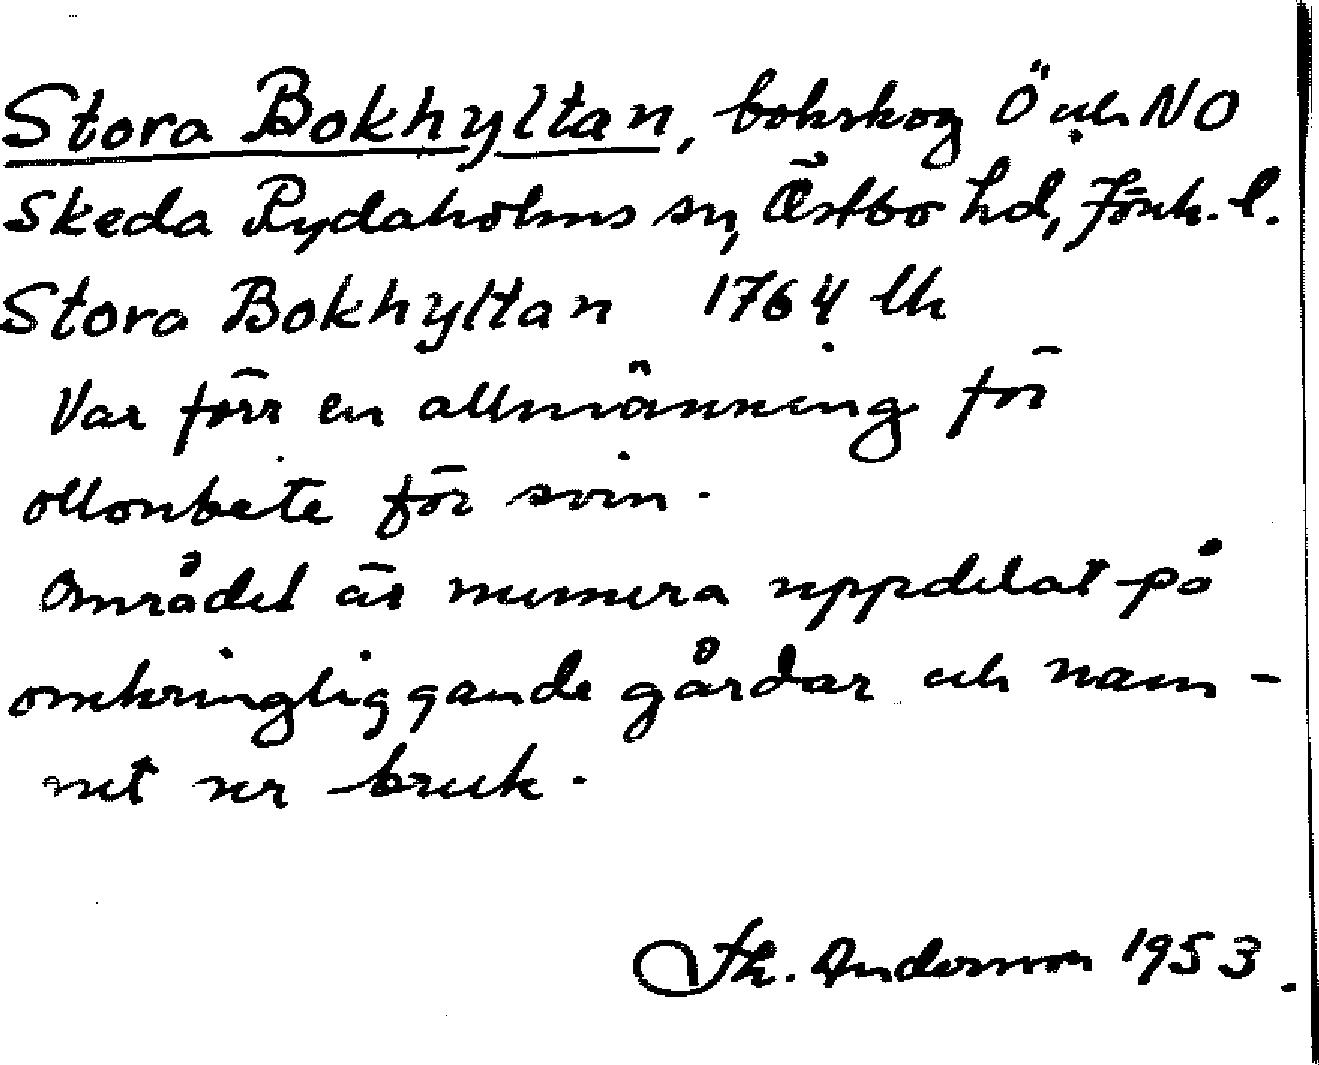 Stora Bokhyltan, bokskog Ö och NO
Skeda Rydaholms sn, Östbo hd, Jönk. l.
Stora Bokhyltan 1764 lh
Var förr en allmänning för
ollonbete för svin.
Området är numera uppdelat på
omkringliggande gårdar och nam-
net ur bruk.
Th. Anderson 1953.